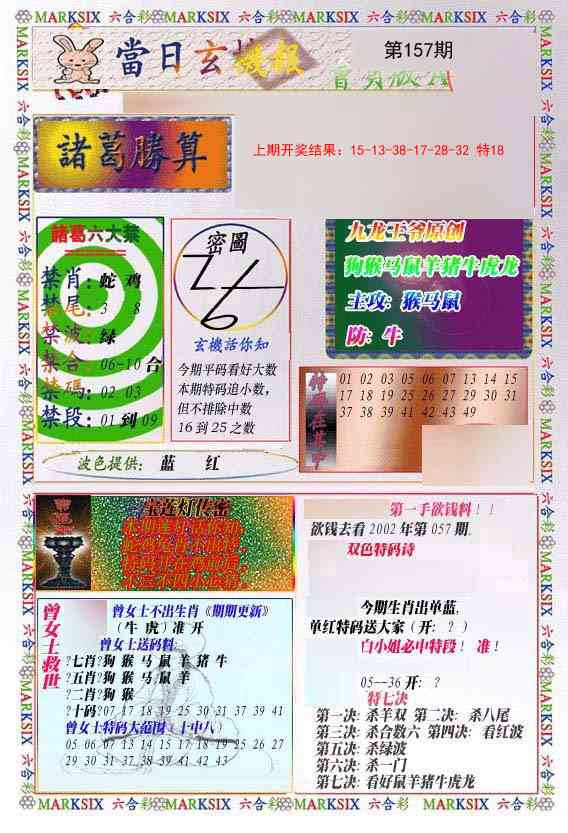 MARKSIX 六合彩 MARKSIX 六合彩 MARKSIX 六合彩 MARKSIX 六合彩 MARKSIX
當日玄機報
第157期
諸葛勝算
上期开奖结果：15-13-38-17-28-32 特18
諸葛六大禁
禁肖：蛇 鸡
禁尾：3 8
禁波：绿
禁合：06-10合
禁碼：02 03
禁段：01到09
密圖
玄機活你知
今期平码看好大数
本期特码追小数，
但不排除中数
16到25之数
波色提供： 蓝 红
九龙王爷原创
狗猴马鼠羊猪牛虎龙
主攻：猴马鼠
防：牛
01 02 03 05 06 07 13 14 15
17 18 19 25 26 27 29 30 31
37 38 39 41 42 43 49
宝连灯传密
曾女士救世
曾女士不出生肖《期期更新》
（牛 虎）准 开
曾女士送码料:
?七肖?狗 猴 马 鼠 羊 猪 牛
?五肖?狗 猴 马 鼠 羊
?二肖?狗 猴
?十码?07 17 18 19 25 30 31 37 39 41
曾女士特码大范围（十中八）
05 06 07 13 14 15 17 18 19 25 26 27
29 30 31 37 38 39 41 42 43
第一手欲钱料！！
欲钱去看2002年第057期.
双色特码诗
今期生肖出单蓝,
单红特码送大家（开：？）
白小姐必中特段！ 准！
05--36 开: ？
特七决
第一决: 杀羊双 第二决: 杀八尾
第三决: 杀合数六 第四决: 看红波
第五决: 杀绿波
第六决: 杀一门
第七决: 看好鼠羊猪牛虎龙
MARKSIX 六合彩 MARKSIX 六合彩 MARKSIX 六合彩 MARKSIX 六合彩 MARKSIX